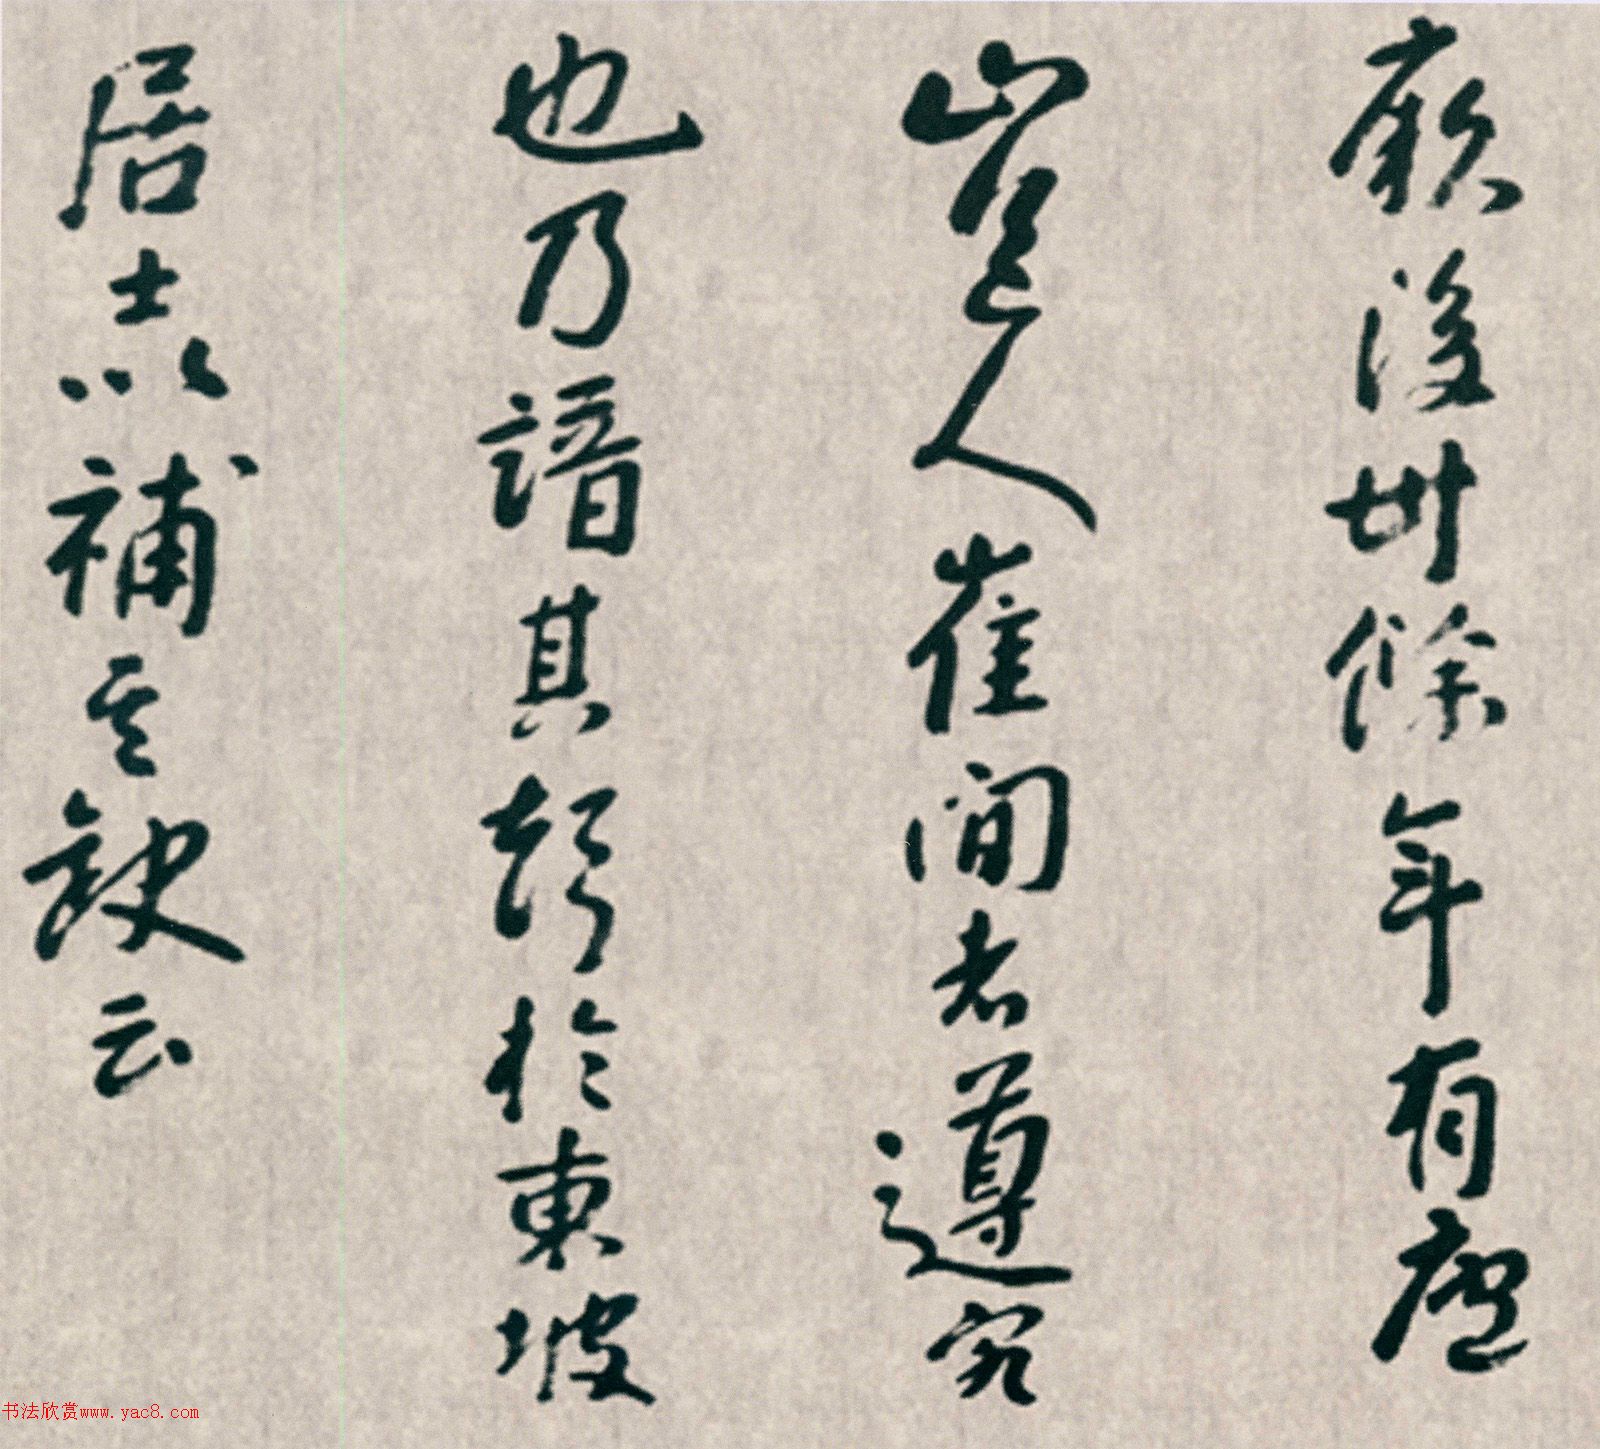 厥後卅餘年有廬
山道人崔閒者遵客
也乃譜其聲於東坡
居士以補其缺云
书法欣赏www.yac8.com